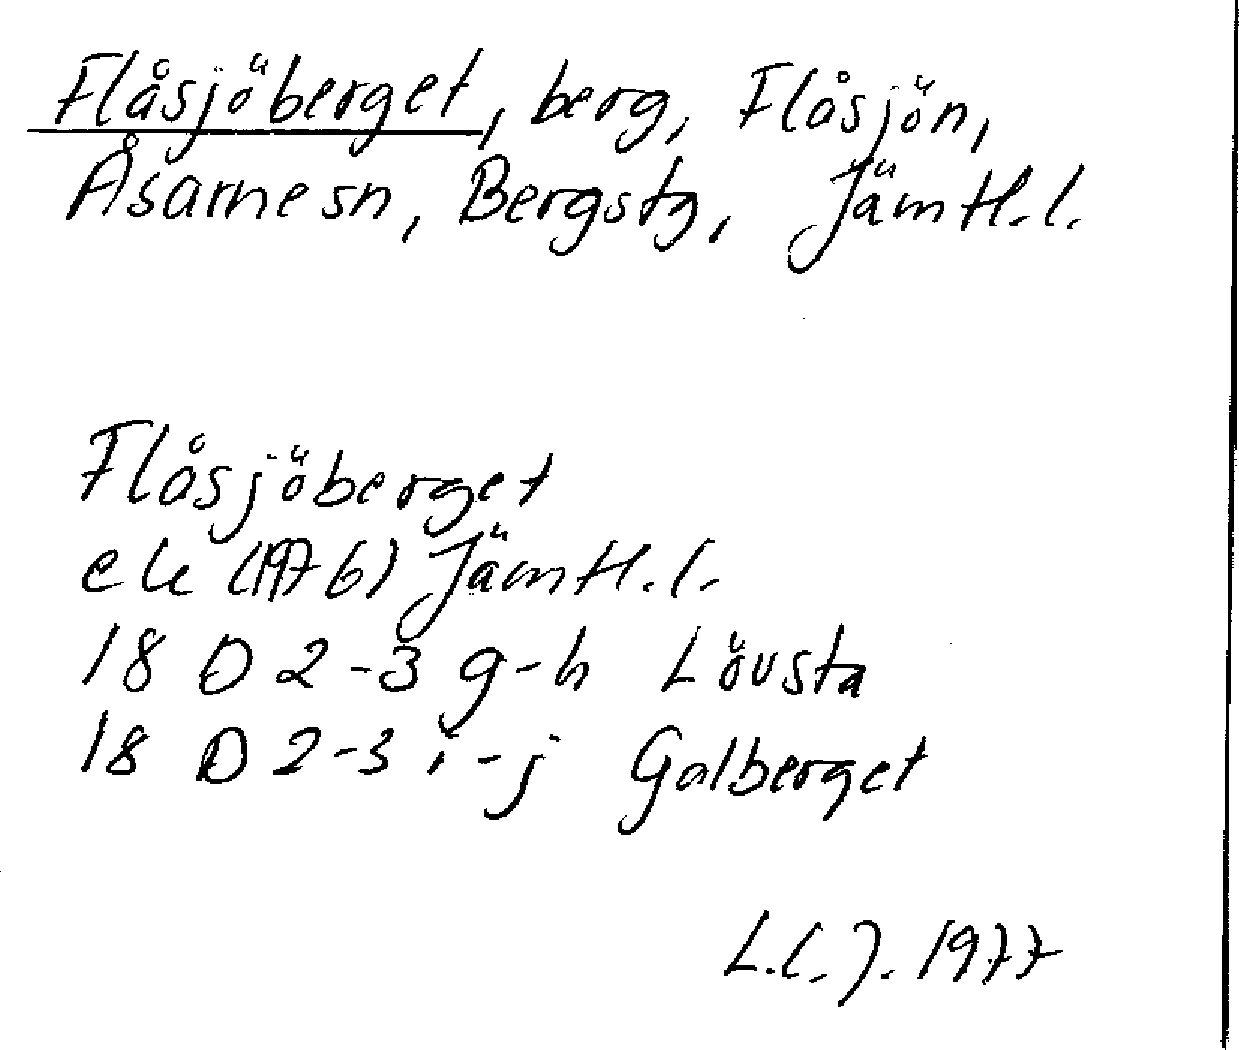 Flåsjöberget, berg, Flåsjön,
Åsarne sn, Bergs tg, Jämtl. l.
Flåsjöberget
ek (1976) Jämtl. l.
18 D 2-3 g-h Lövsta
18 D 2-3 i-j Galberget
L.C.J. 1977